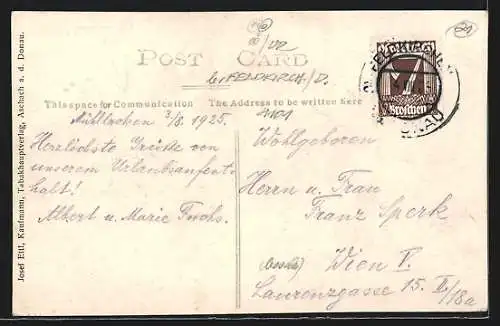 POST CARD
b. FELDKIRCH/D.
This space for Communication
The Address to be written here
Mühllacken 3/8. 1925.
Herzlichste Grüße von
unserem Urlaubsaufent-
halt!
Albert u. Marie Fuchs.
Wohlgeboren
Herrn u. Frau
Franz Sperk
Wien V.
Laurenzgasse 15. II/18a
7
Groschen
DONAU
Josef Ettl, Kaufmann, Tabakhauptverlag, Aschach a. d. Donau.